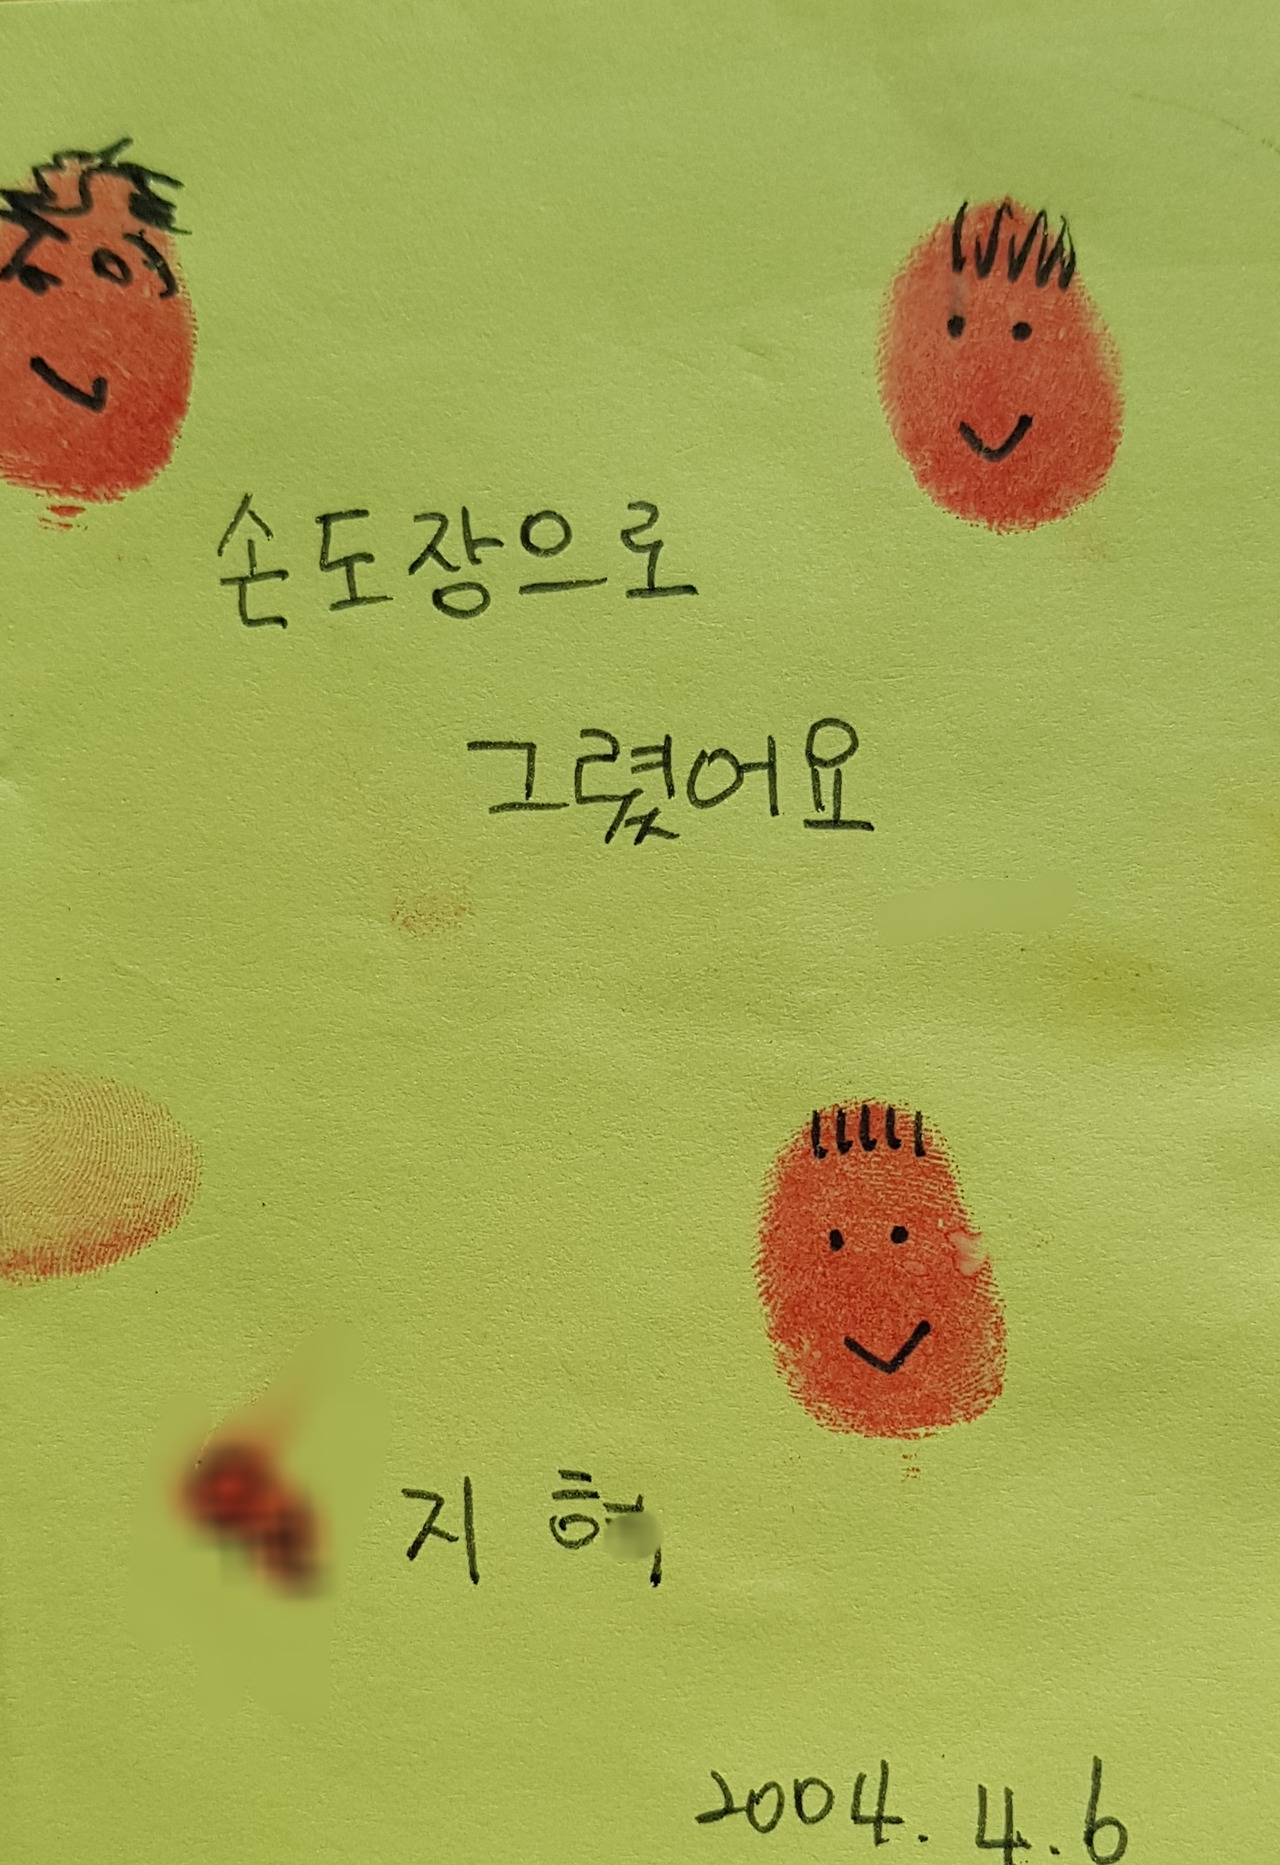 손도장으로
그렸어요
지혁
2004. 4. 6